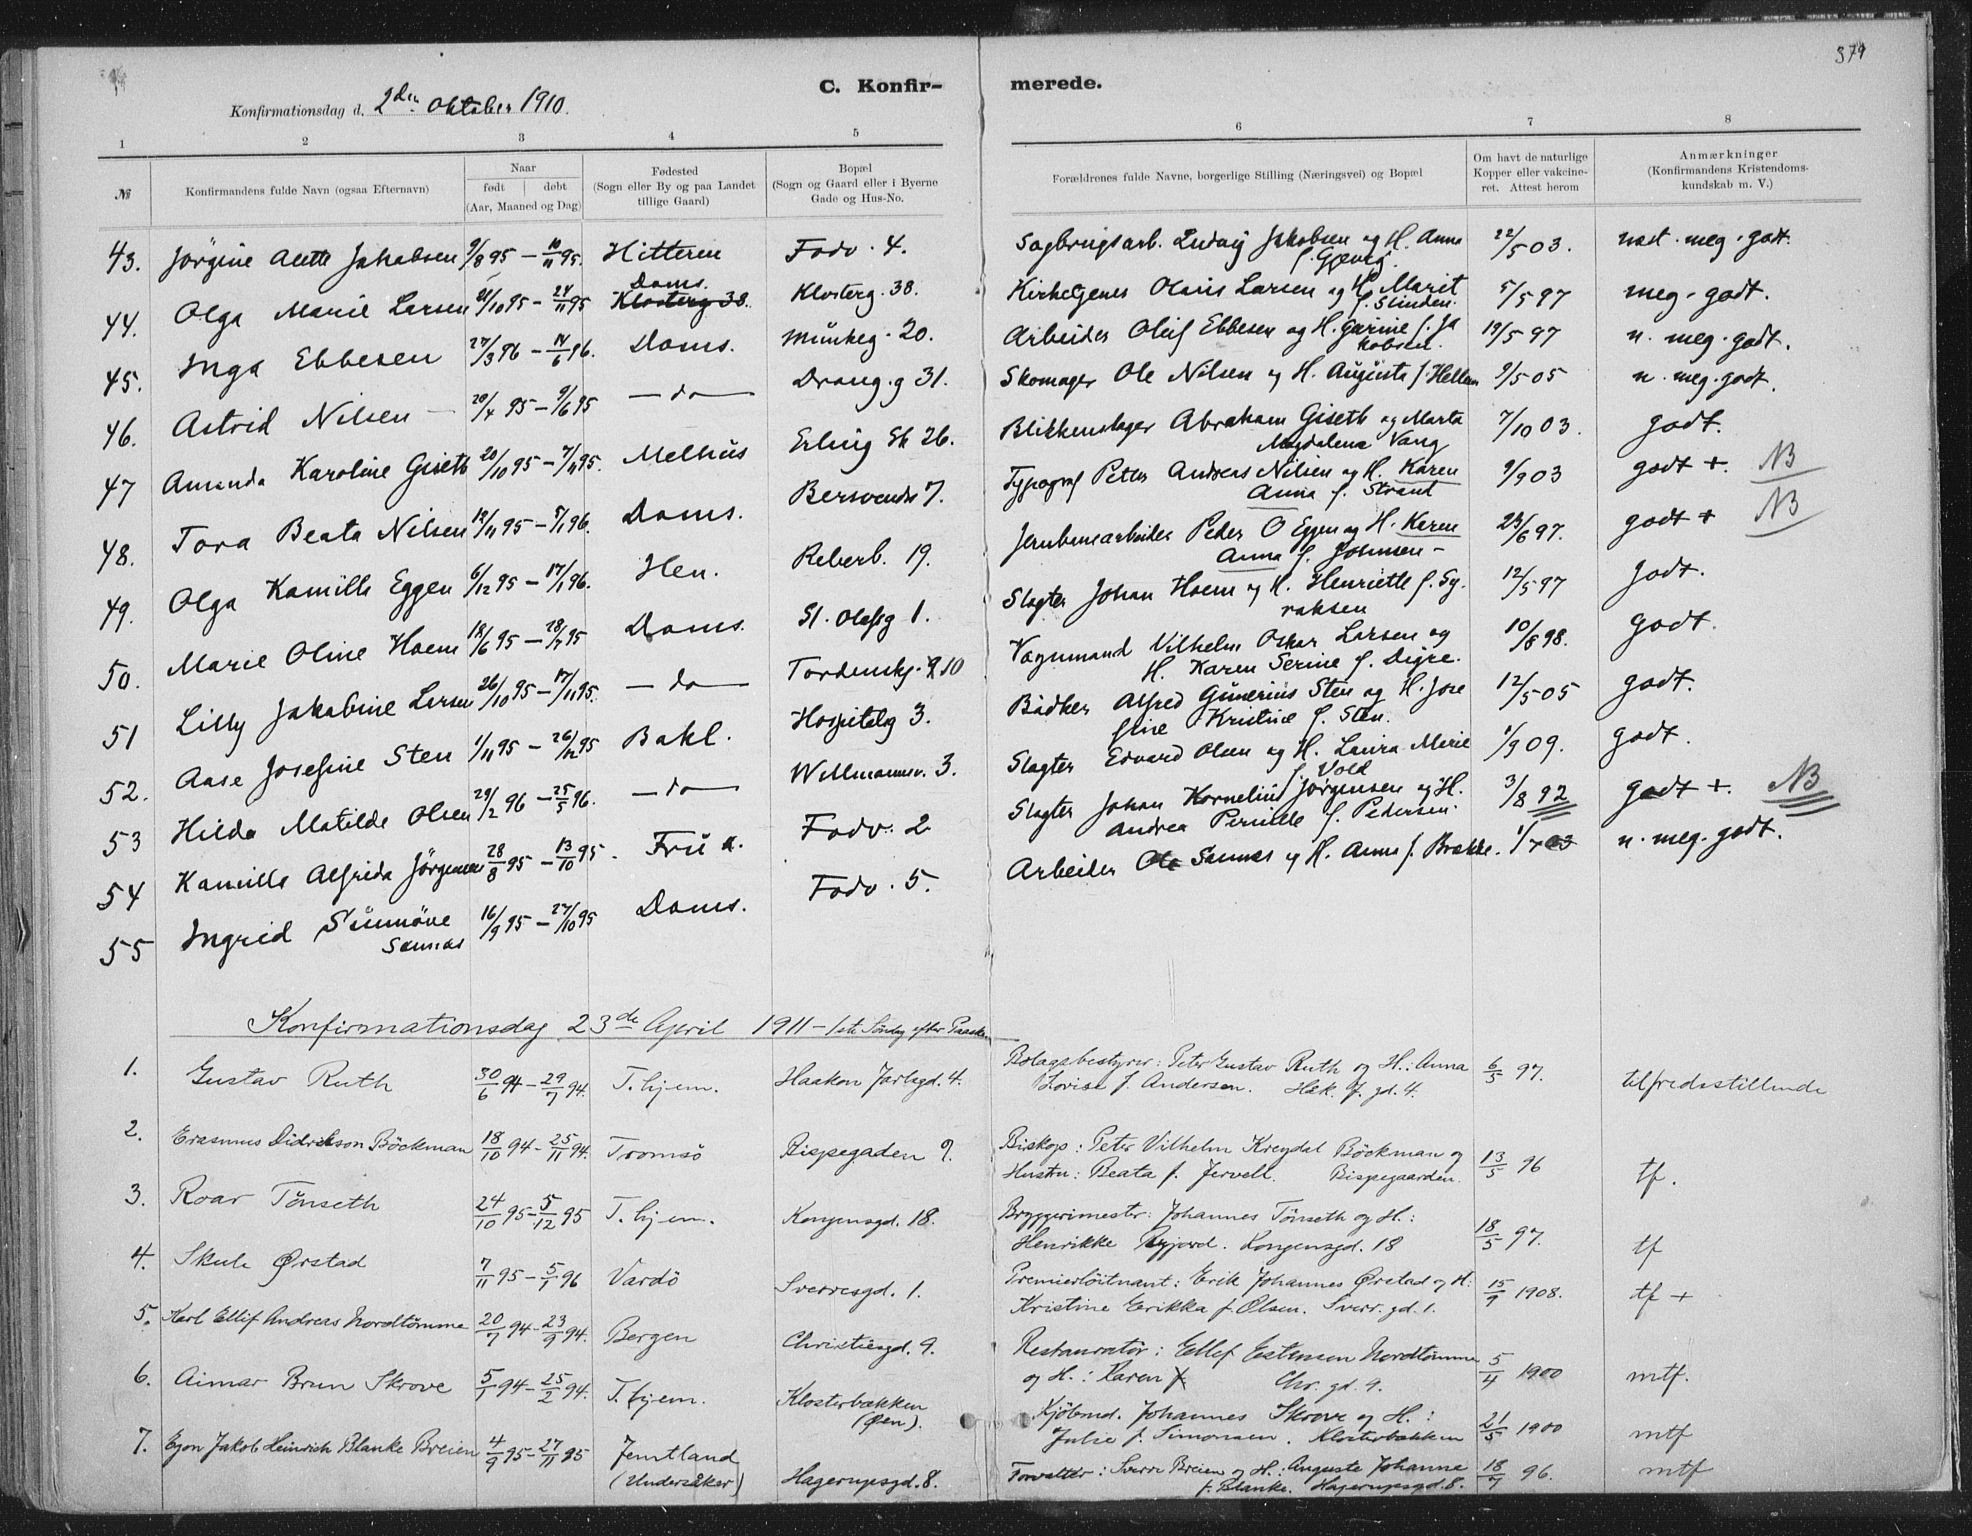 379
C. Konfir- merede.
Konfirmationsdag d. 2den Oktober 1910.
1 2 3 4 5 6 7 8
№ Konfirmandens fulde Navn (ogsaa Efternavn)
Naar født | døbt (Aar, Maaned og Dag)
Fødested (Sogn eller By og paa Landet tillige Gaard)
Bopæl (Sogn og Gaard eller i Byerne Gade og Hus-No.
Forældrenes fulde Navne, borgerlige Stilling (Næringsvei) og Bopæl
Om havt de naturlige Kopper eller vakcineret. Attest herom
Anmærkninger (Konfirmandens Kristendomskundskab m. V.)
43. Jørgine Aette Jakobsen 9/8 95 – 10/11 95. Hitteren Fodv. 4. Sagbrugsarb. Ludvig Jakobsen og H. Anna 22/5 03. næst. meg. godt.
44. Olga Marie Larsen 21/10 95 – 24/11 95 Doms. Klosterg 38. Klosterg. 38. Kirketjener Olaus Larsen og H. Marit f. Slinden. 5/5 97 meg. godt.
45. Inga Ebbesen 27/3 96 – 14/6 96. Doms. Munkeg. 20. Arbeider Oluf Ebbesen og H. Gurine f. Ja
kobsen. 19/5 97 n. meg. godt.
46. Astrid Nilsen 20/4 95 – 9/6 95 – do – Drong. g 31. Skomager Ole Nilsen og H. Augusta f. Hellem 9/5 05 n. meg. godt.
47 Amanda Karoline Giseth 20/10 95 – 7/11 95. Melhus Erling Sk 26. Blikkenslager Abraham Giseth og Marta
Magdalena Vang 7/10 03. godt.
48. Tora Beata Nilsen 12/11 95 – 5/1 96. Doms. Bersvends 7. Typograf Petter Andreas Nilsen og H. Karen
Anna f. Strand 9/9 03 godt +. NB
49. Olga Kamilla Eggen 6/12 95 – 17/1 96. Hen. Reberb. 19. Jernbanearbeider Peder O Eggen og H. Karen
Anna f. Johnsen – 23/6 97. godt + NB
50. Marie Oline Hoem 18/6 95 – 28/7 95 Doms. St. Olafsg 1. Slagter Johan Hoem og H. Henriette f. Sy-
raksen 12/5 97 godt.
51 Lilly Jakobine Larsen 26/10 95 – 17/11 95. – do – Tordenskj. g 10 Vognmand Vilhelm Oskar Larsen og
H. Karen Serine f. Digre. 10/8 98. godt.
52. Aase Josefine Sten 1/11 95 – 26/12 95 Bakl. Hospitalsg 3. Bødker Alfred Gunerius Sten og H. Jose
fine Kristine f. Sten. 12/5 05 godt.
53 Hilda Matilde Olsen 29/2 96 – 25/5 96. – do – Willmannsv. 3. Slagter Edvard Olsen og H. Laura Marie
f. Vold 1/9 09. godt.
54 Kamilla Alfrida Jørgensen 28/8 95 – 13/10 95. Fru k. Fodv. 2 Slagter Johan Kornelius Jørgensen og H.
Andrea Pernille f. Pedersen. 3/8 92 godt +. NB
55 Ingrid Sunnöve
Sannes 16/9 95 – 27/10 95 Doms. Fodv. 5. Arbeider Ole Sannes og H. Anna f. Brække. 1/7 03 n. meg. godt.
Konfirmationsdag 23de April 1911 – 1ste Söndag efter Paaske
1. Gustav Ruth 30/6 94 – 29/7 94. T.hjem. Haakon Jarlsgd. 4. Bolagsbestyrer: Peter Gustav Ruth og H.: Anna
Lovise f. Andersen. Hak. J. gd. 4. 6/5 97. tilfredsstillende
2. Erasmus Didrikson Böckman 18/10 94 – 25/11 94. Tromsö Bispegaden 9. Biskop: Peter Vilhelm Kreydal Böckman og
Hustru: Beata f. Jervell. Bispegaarden. 13/5 96 tf.
3. Roar Tönseth 24/10 95 – 5/12 95 T.hjem. Kongensgd. 18. Bryggerimester: Johannes Tönseth og H.:
Henrikke Ryjord. Kongensgd. 18 18/5 97. tf
4. Skule Ørstad 7/11 95 – 5/1 96 Vardö Sverresgd. 1. Premierlöitnant: Erik Johannes Ørstad og H:
Kristine Erikka f. Olsen. Sverr. gd. 1. 15/9 1908. tf +
5. Karl Ellif Andreas Nordtömme 20/7 94 – 23/9 94. Bergen Christiesgd. 9. Restauratör: Ellef Estensen Nordtömme
og H.: Karen f. Chr. gd. 9. 5/4 1900 mtf.
6. Aimar Brun Skrove 5/1 94 – 25/2 94. T.hjem. Klosterbakken
(Øen). Kjöbmd. Johannes Skrove og H.:
Julie f. Simonsen. Klosterbakken 21/5 1900 mtf
7. Egon Jakob Heinrich Blanke Breien 4/9 95 – 27/11 95 Jemtland
(Undersåker) Hagerupsgd. 8. Forvalter: Sverre Breien og H.: Auguste Johanne
f. Blanke. Hagerupsgd. 8. 18/7 96. mtf